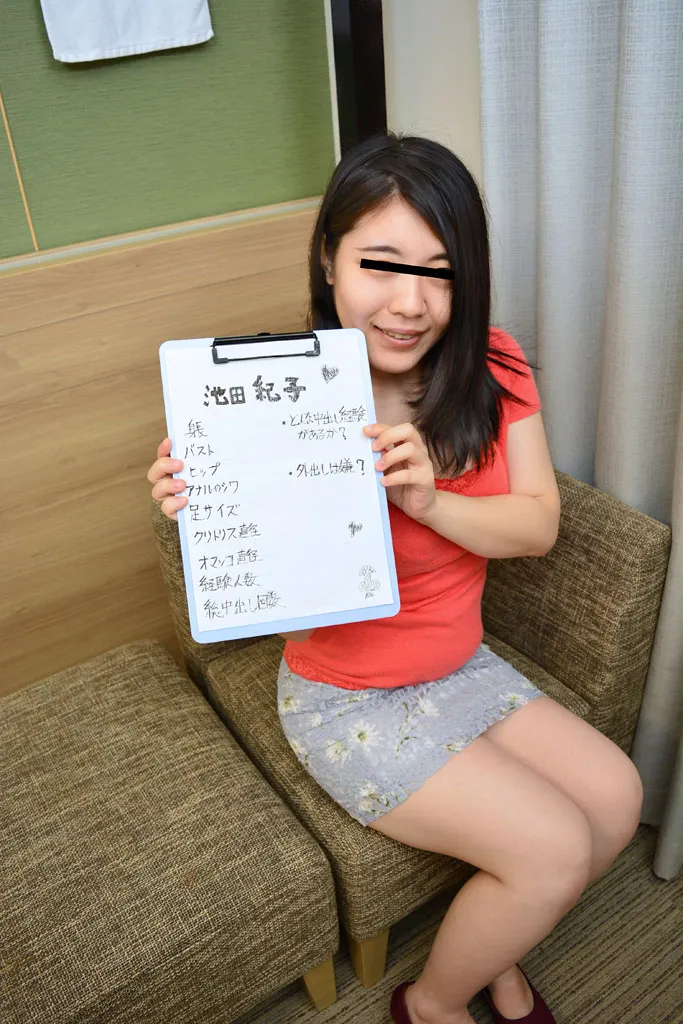 池田 紀子
身長
バスト
ヒップ
アナルのシワ
足サイズ
クリトリス直径
オマ〇コ直径
経験人数
総中出し回数
・どんな中出し経験
があるか?
・外出しは嫌?